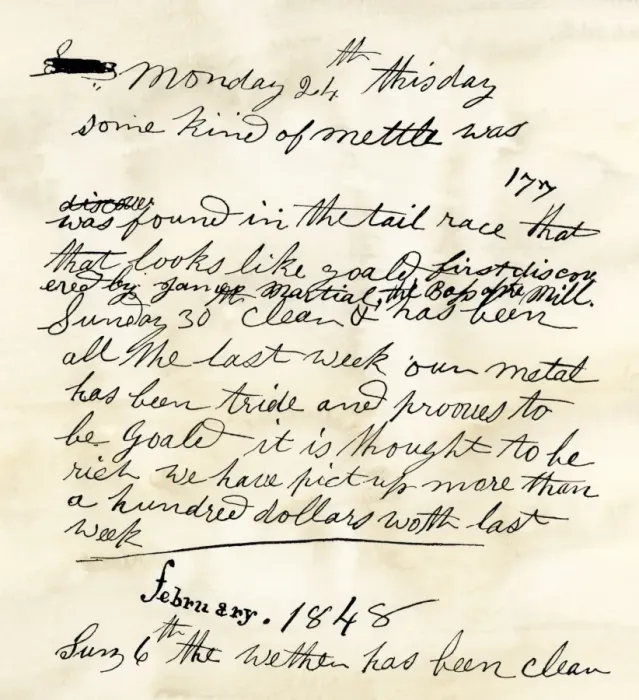 Monday 24th this day
some kind of mettle was
177
discover
was found in the tail race that
that looks like goald first discov
ered by James Martial, the Boss of the Mill.
Sunday 30th clean & has been
all the last week our metal
has been tride and prooves to
be goald it is thought to be
rich we have pict up more than
a hundred dollars worth last
week
february. 1848
Sun 6th the wether has been clean